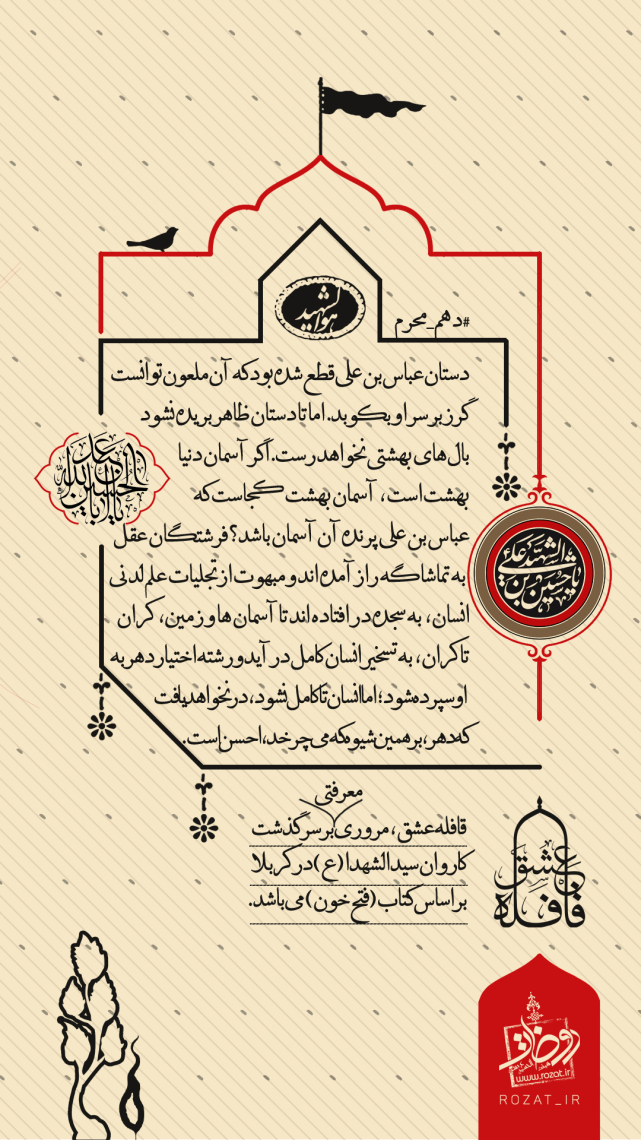 هوالشهید
#دهم_محرم
دستان عباس بن علی قطع شده بود که آن ملعون توانست
گرز بر سر او بکوبد. اما تا دستان ظاهر بریده نشود
بال های بهشتی نخواهد رست. اگر آسمان دنیا
بهشت است، آسمان بهشت کجاست که
عباس بن علی پرنده آن آسمان باشد؟ فرشتگان عقل
به تماشاگه راز آمده اند و مبهوت از تجلیات علم لدنی
انسان، به سجده در افتاده اند تا آسمان ها و زمین، کران
تا کران، به تسخیر انسان کامل در آید و رشته اختیار دهر به
او سپرده شود؛ اما انسان تا کامل نشود، در نخواهد یافت
که دهر، بر همین شیوه که می چرخد، احسن است.
معرفتی
قافله عشق، مروری بر سرگذشت
کاروان سیدالشهدا (ع) در کربلا
بر اساس کتاب (فتح خون) می باشد.
قافله عشق
www.rozat.ir
ROZAT_IR